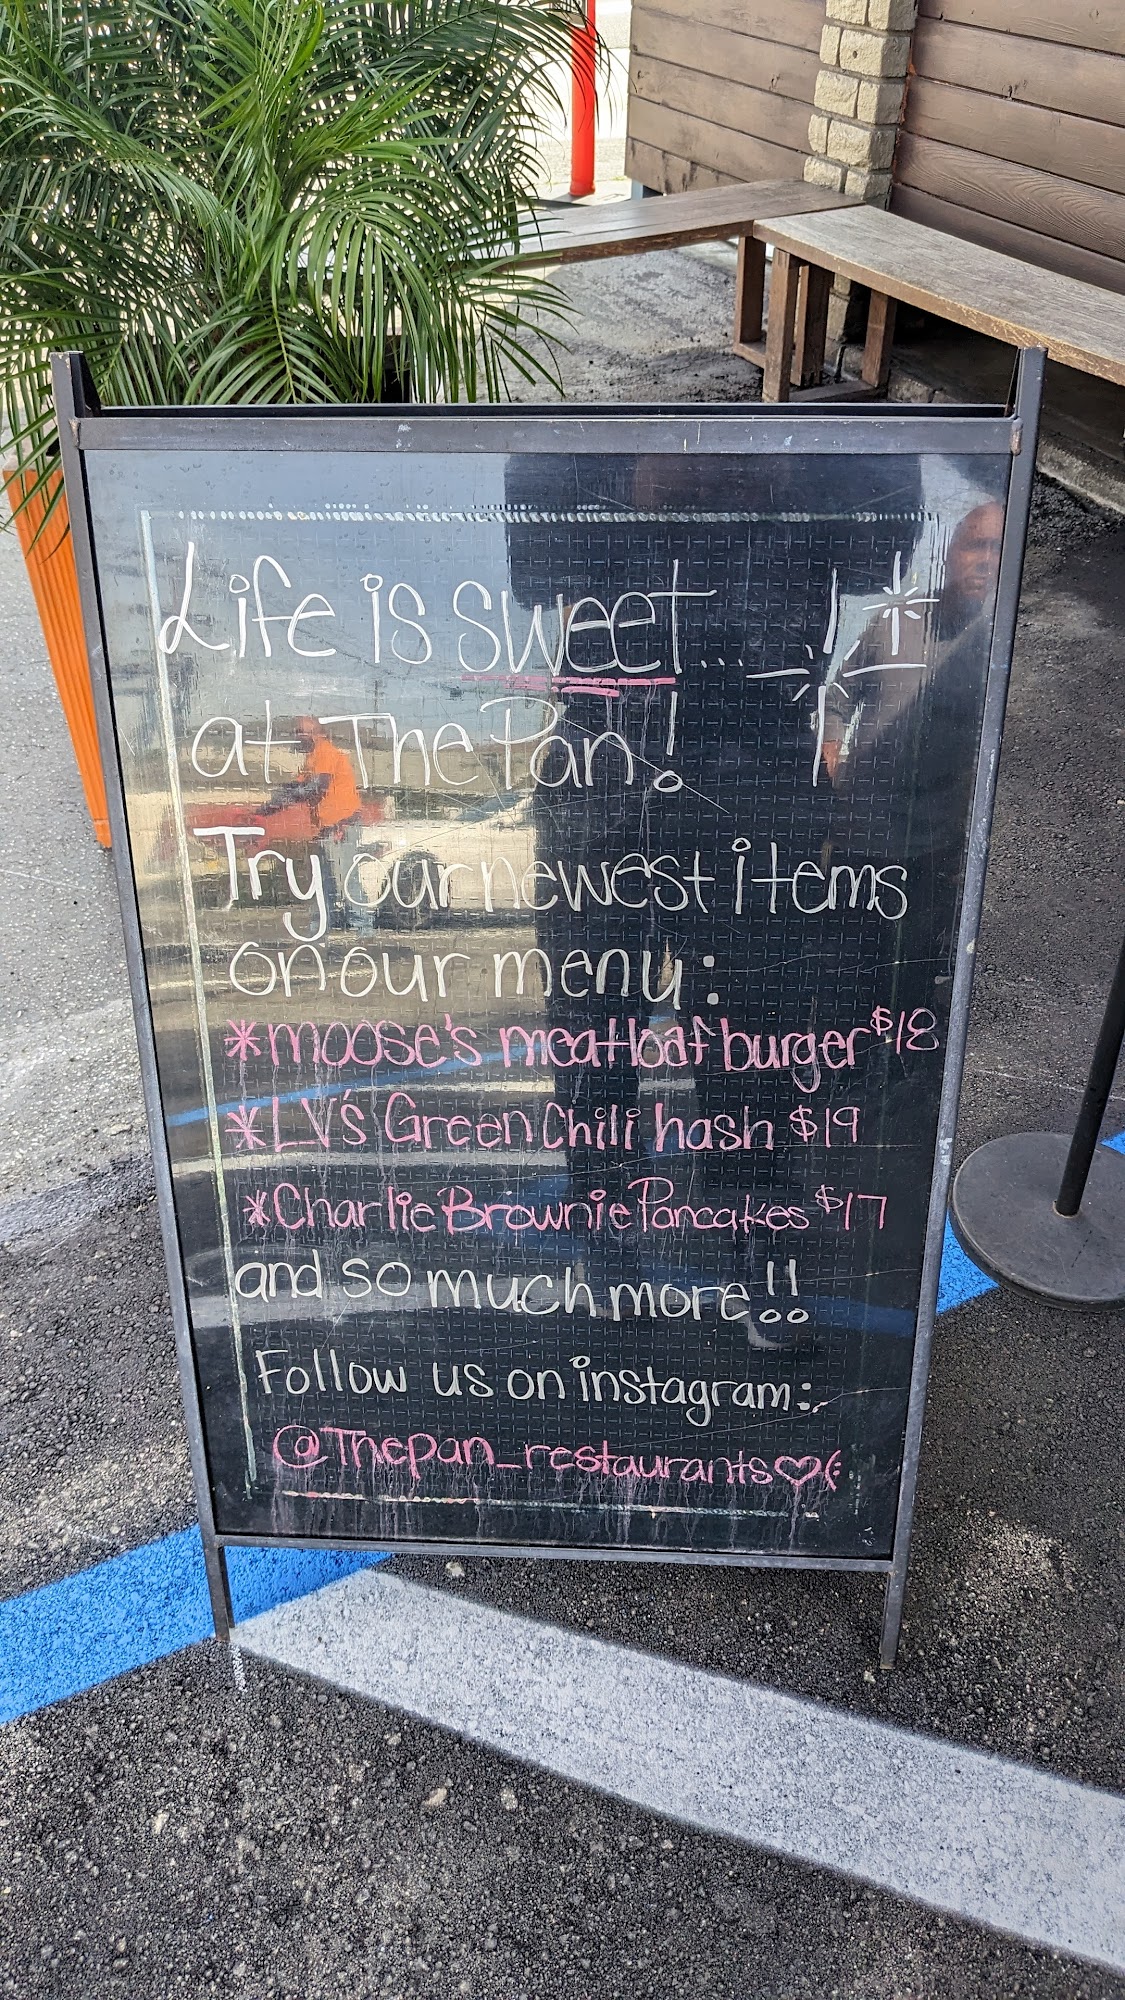 Life is sweet...
at The Pan!
Try our newest items
on our menu:
*moose's meatloaf burger $18
*LV's Green Chili hash $19
*Charlie Brownie Pancakes $17
and so much more!!
Follow us on instagram:
@Thepan_restaurants♡(: